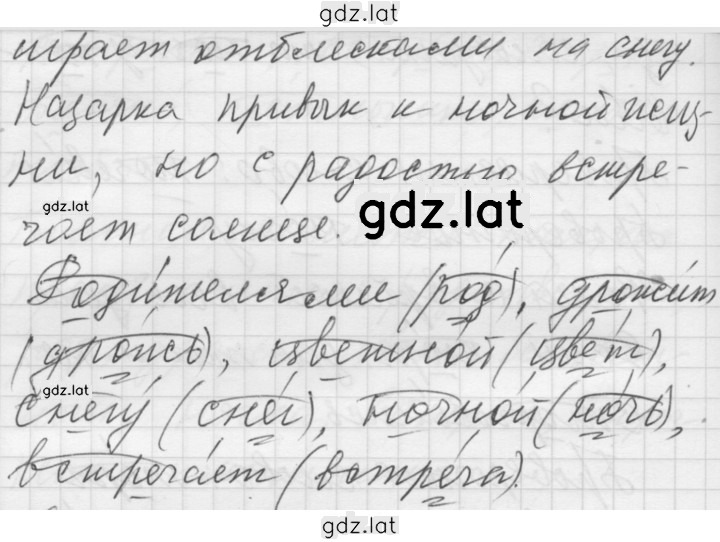 gdz.lat
играет отблесками на снегу.
Назарка привык к ночной
ни, но с радостью встре-
gdz.lat
чает солнце.
gdz.lat
Родителями (род), дрожит
(дрожь), цветной (цвет),
gdz.lat
Снегу (снег), Ночной (ночь),
встречает (встреча).
gdz.lat